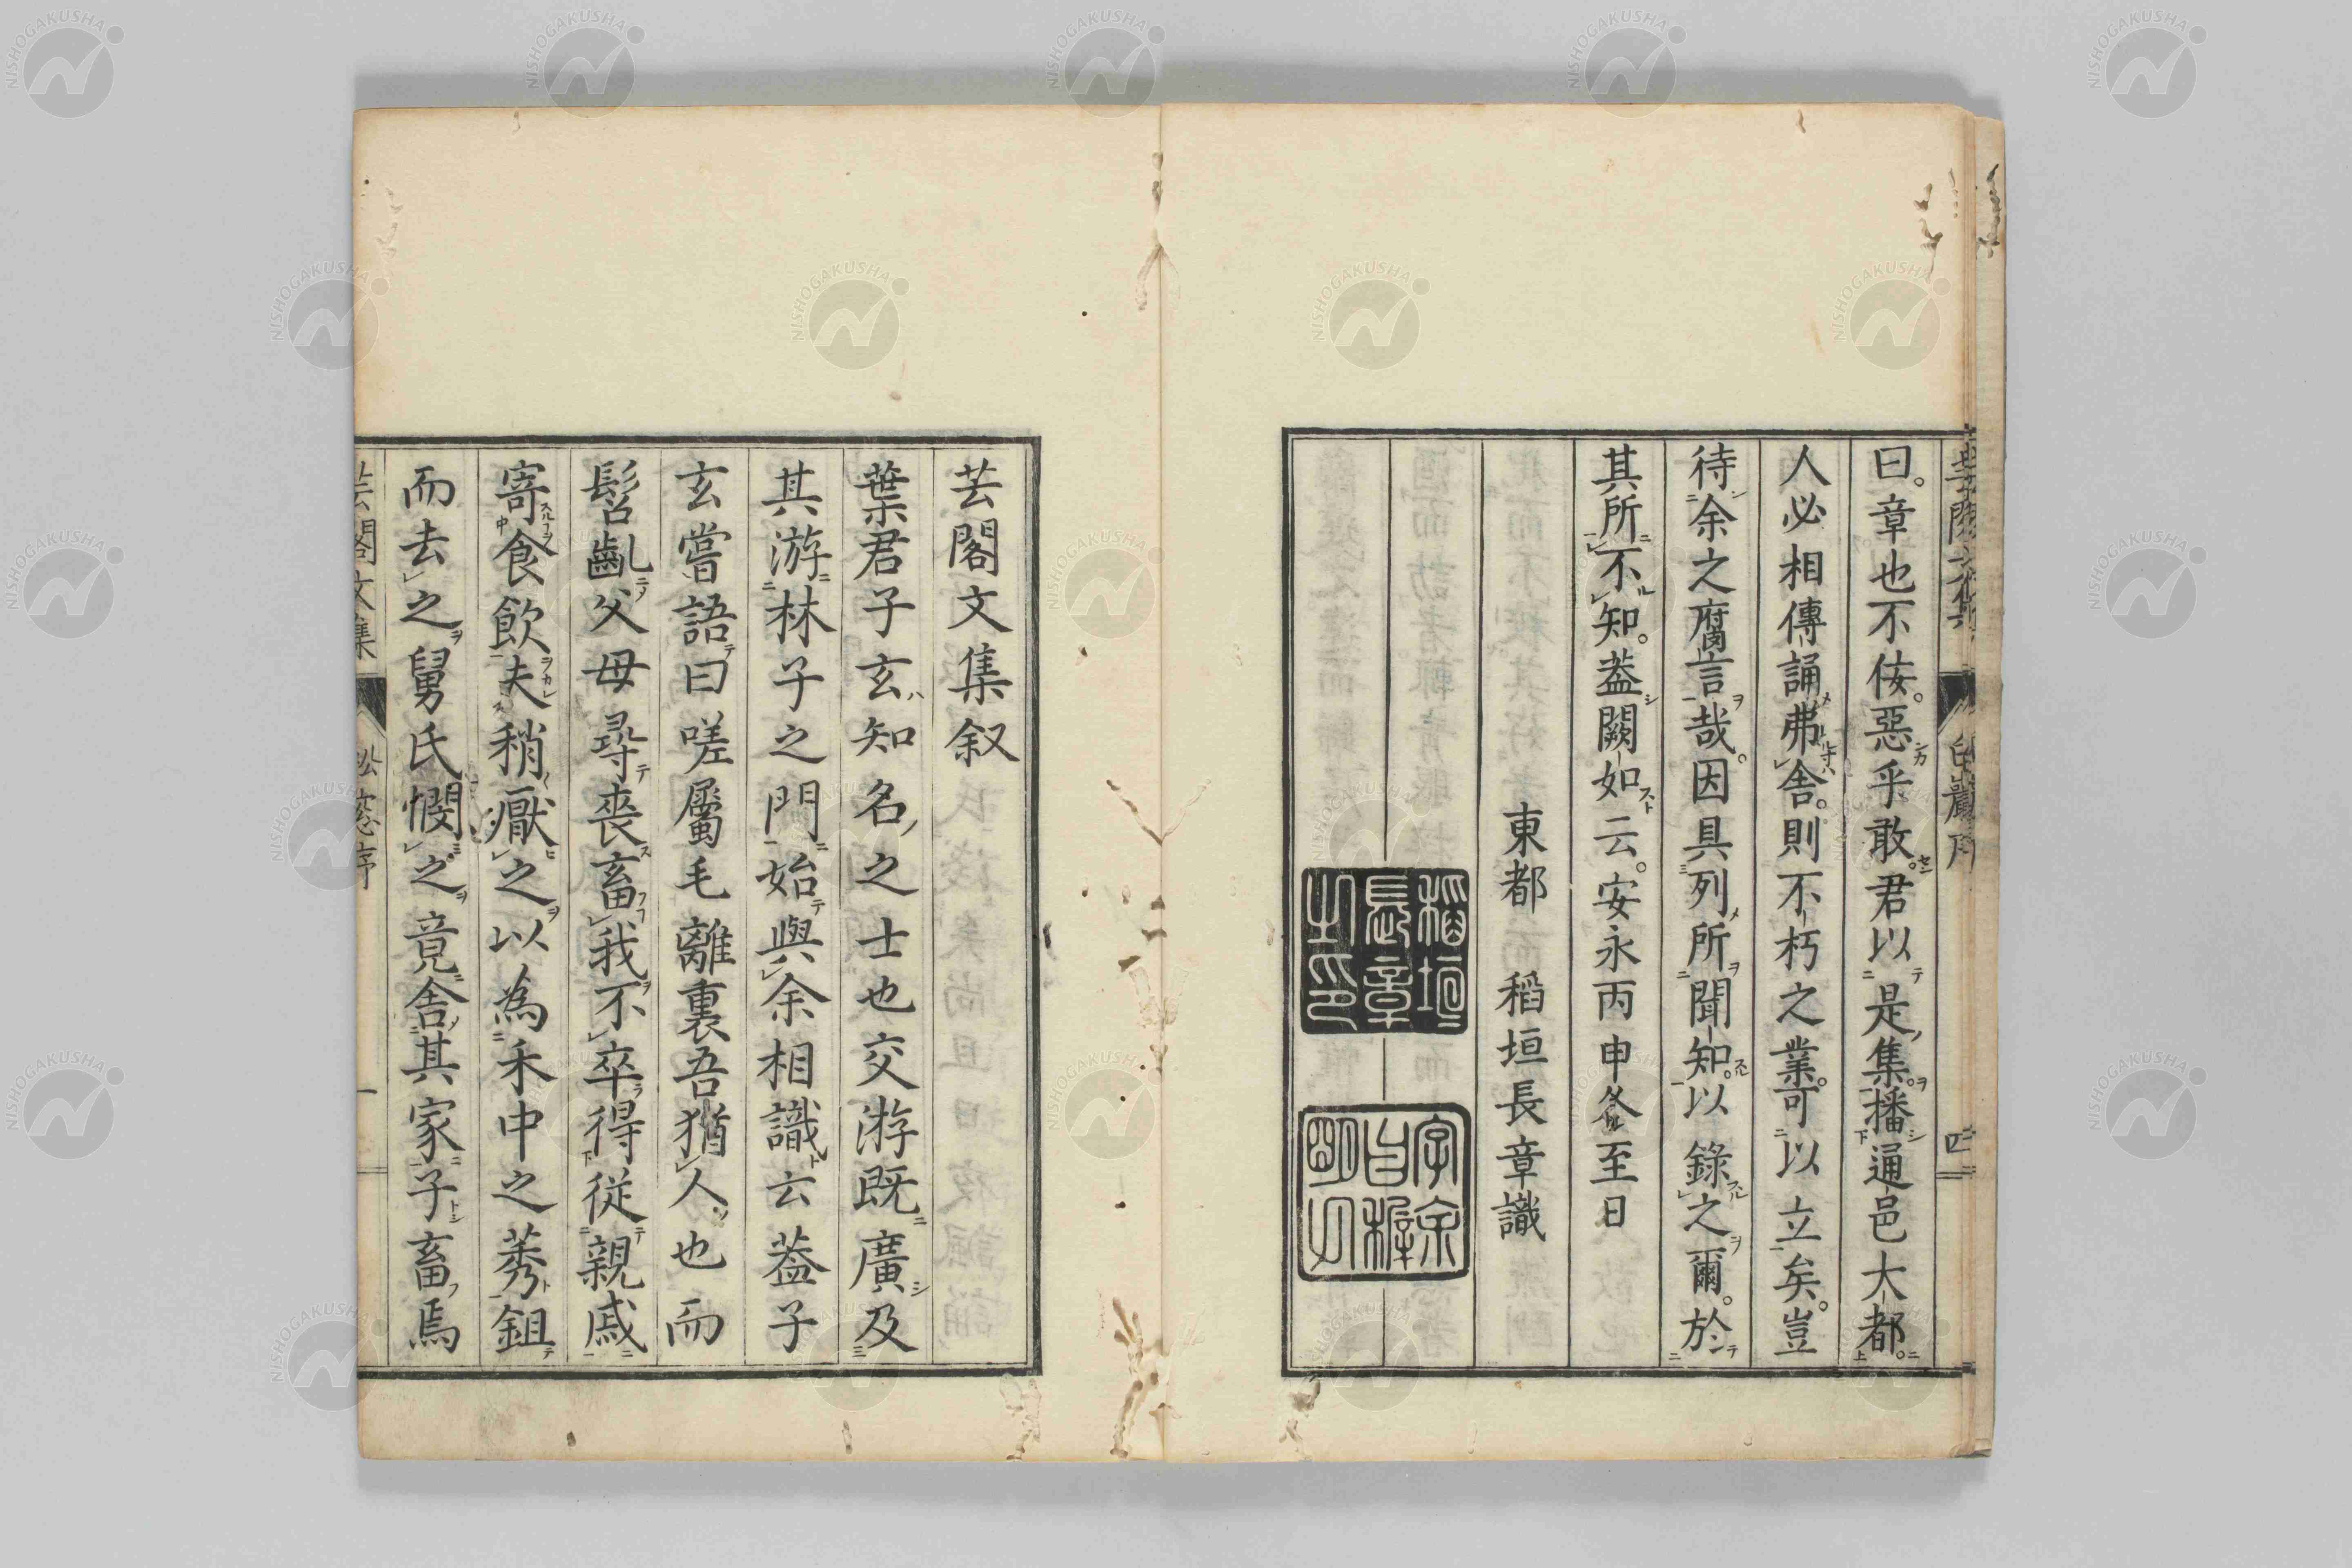 曰。章也不佞。惡乎敢。君以是集。播通邑大都。
人必相傳誦弗舎。則不朽之業。可以立矣。豈
待余之腐言哉。因具列所聞知。以錄之爾。於
其所不知。蓋闕如云。安永丙申冬至日
東都 稻垣長章識
稻垣長章之印
芸閣文集叙
葉君子玄知名之士也交游既廣及
其游林子之門始與余相識云蓋子
玄嘗語曰嗟屬毛離裏吾猶人也而
髫齔父母尋喪畜我不卒得從親戚
寄食飲夫稍厭之以為禾中之莠鉏
而去之舅氏憫之竟舎其家子畜焉
芸閣文集 松窓序 一